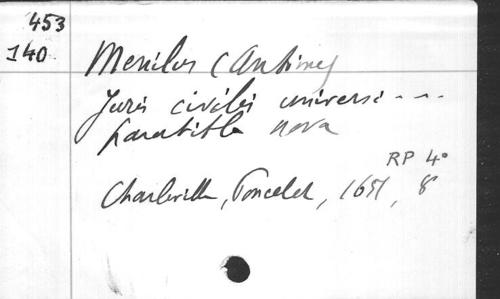 453
140.
Menilus (Antoine)
Juris civilis universi - - -
paratitla nova
RP 4°
Charleville, Poncelet, 1651, 8